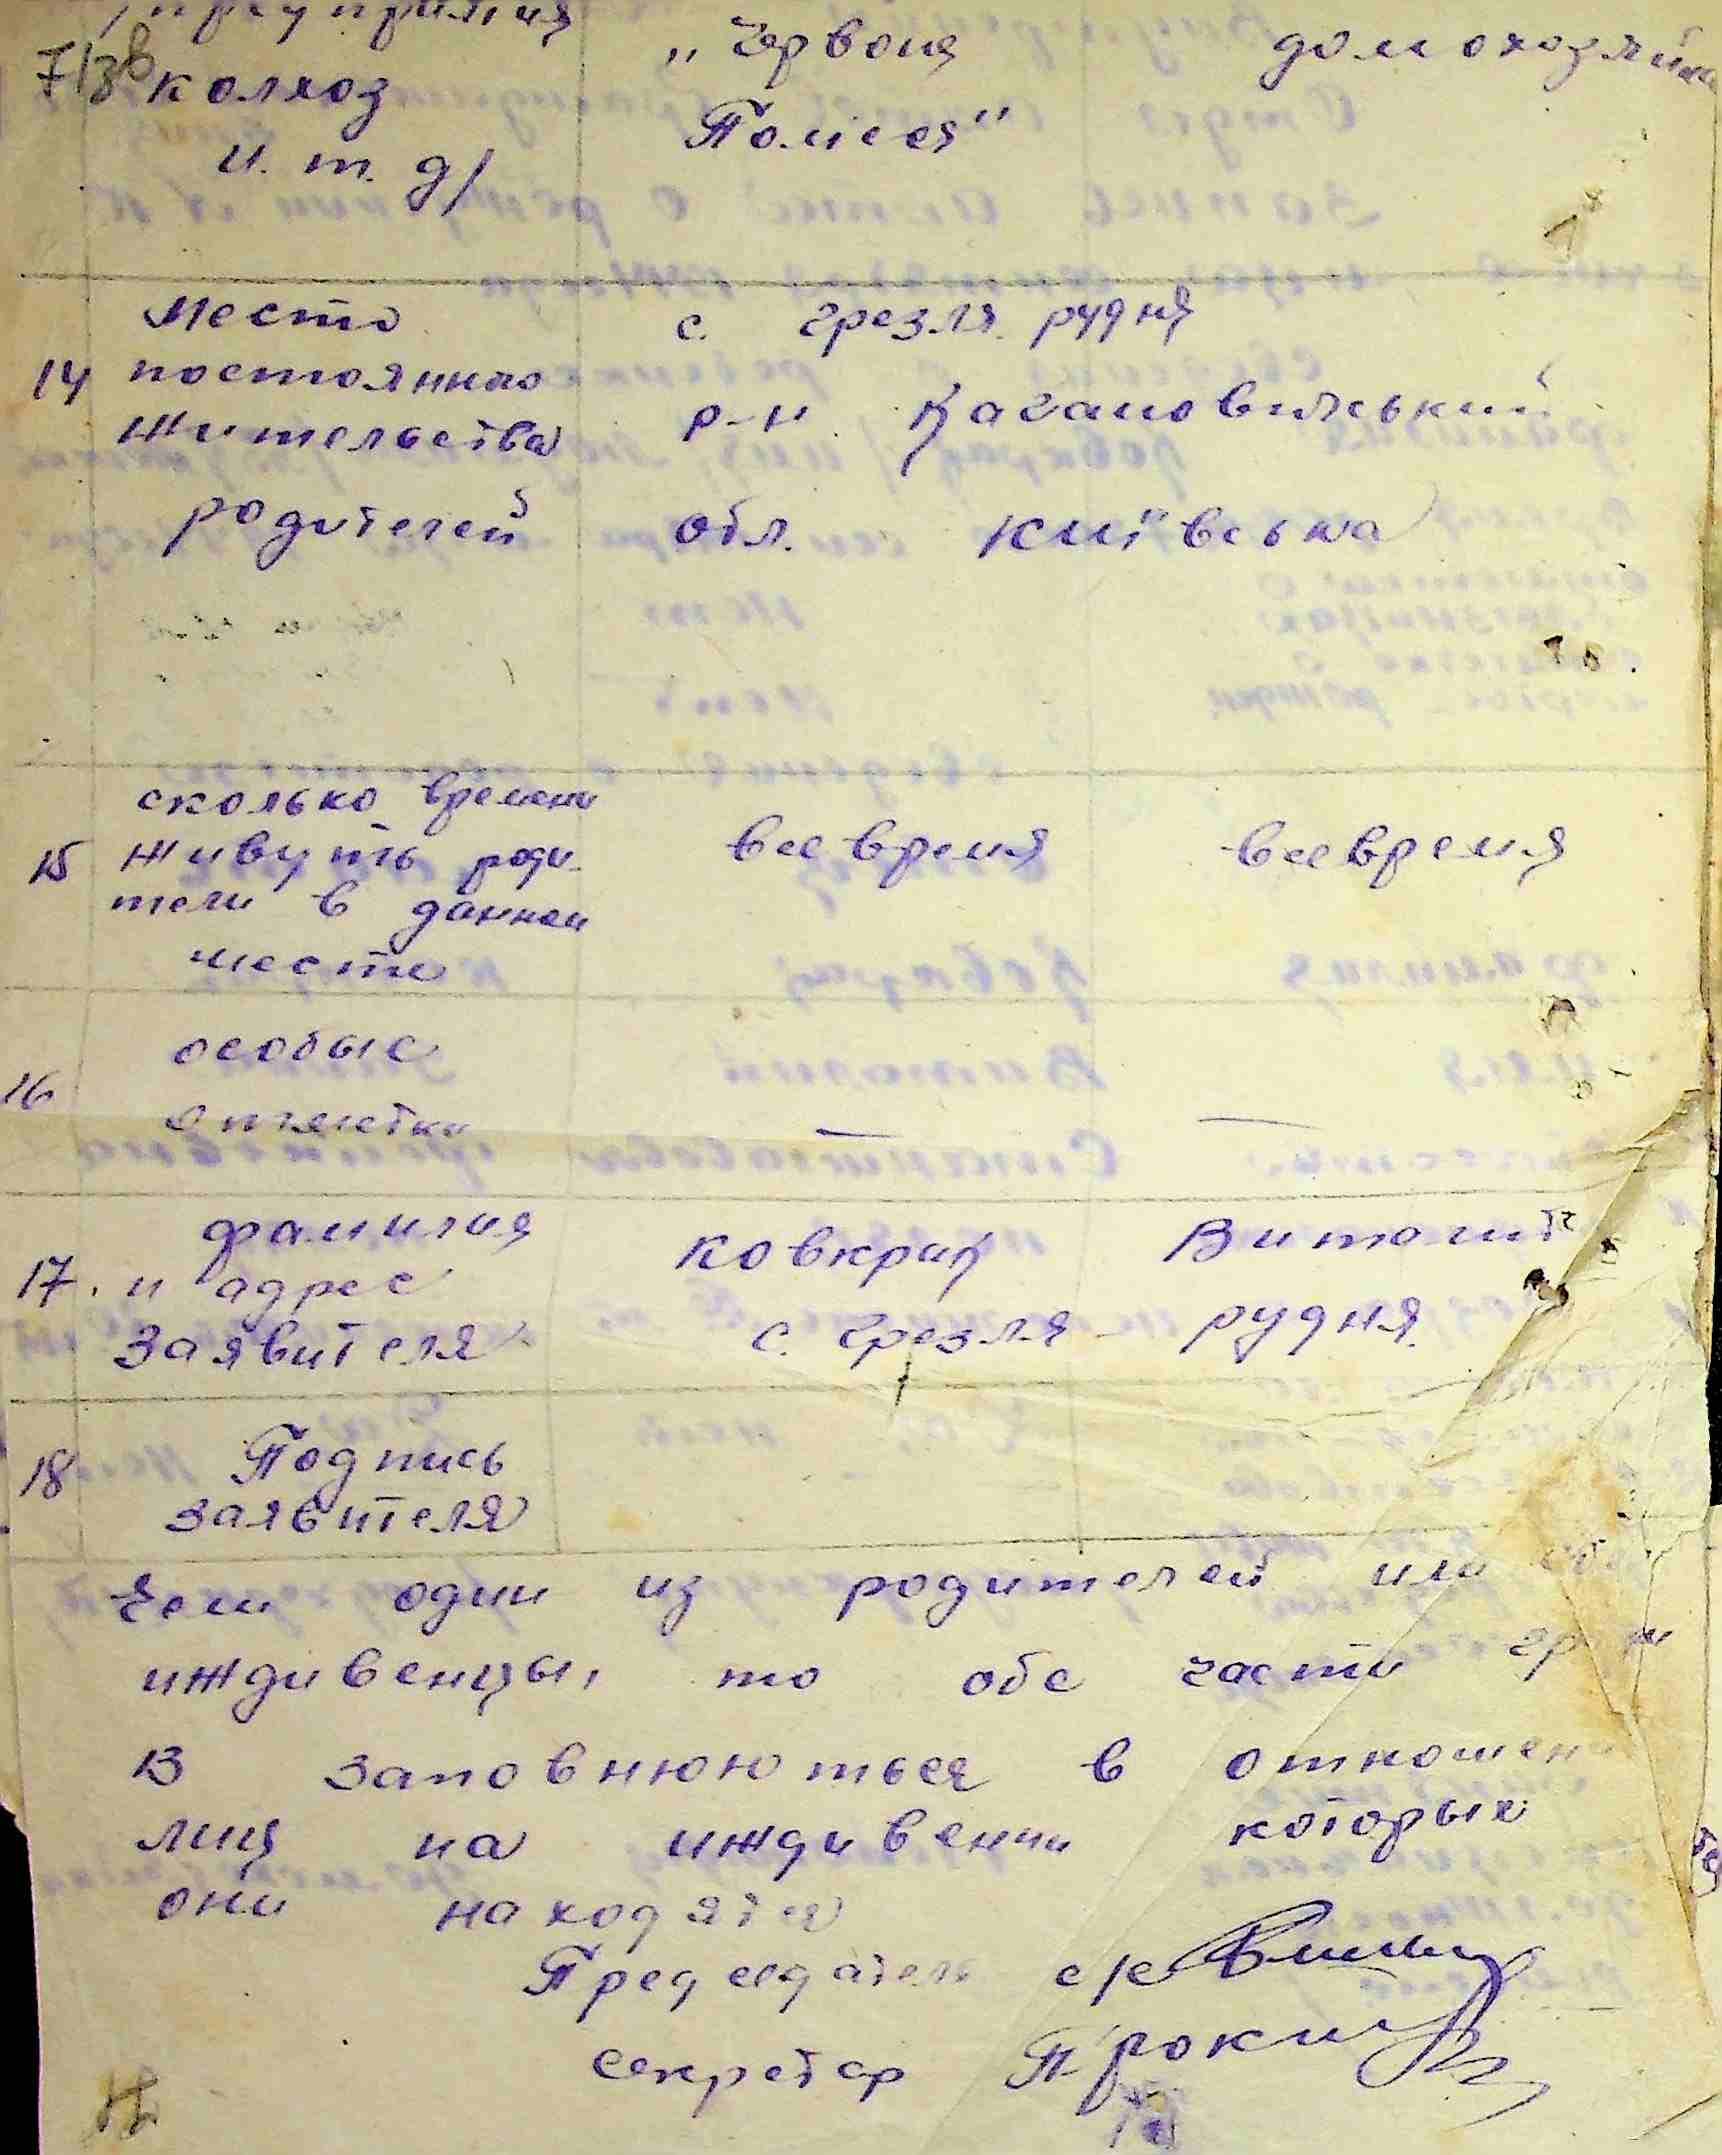 /предприятия „Червона домохозяйка
7/3в колхоз Полісся"
и. т. д/
место с. грезля рудня
14 постоянного
жительства р-н Кагановичський
родителей обл. Київська
сколько времени
15 живуть роди- все время все время
тели в данном
месте
особые
16 отметки — —
фамилия Ковкрац Виталий
17. и адрес
заявителя с. грезля - рудня.
18 Подпись
заявителя
Если один из родителей или
иждивенцы, то обе части
В заповнюються в отношен
лиц на иждивении которых
они находятся
Председатель с/с
секретар Прокип